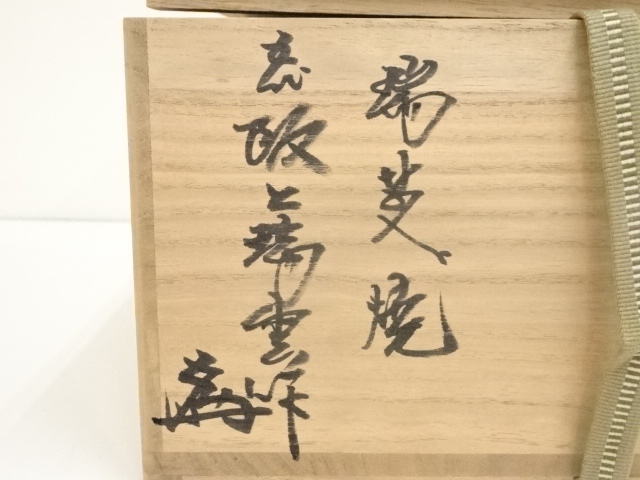 瑞芝焼
阪上瑞雲作